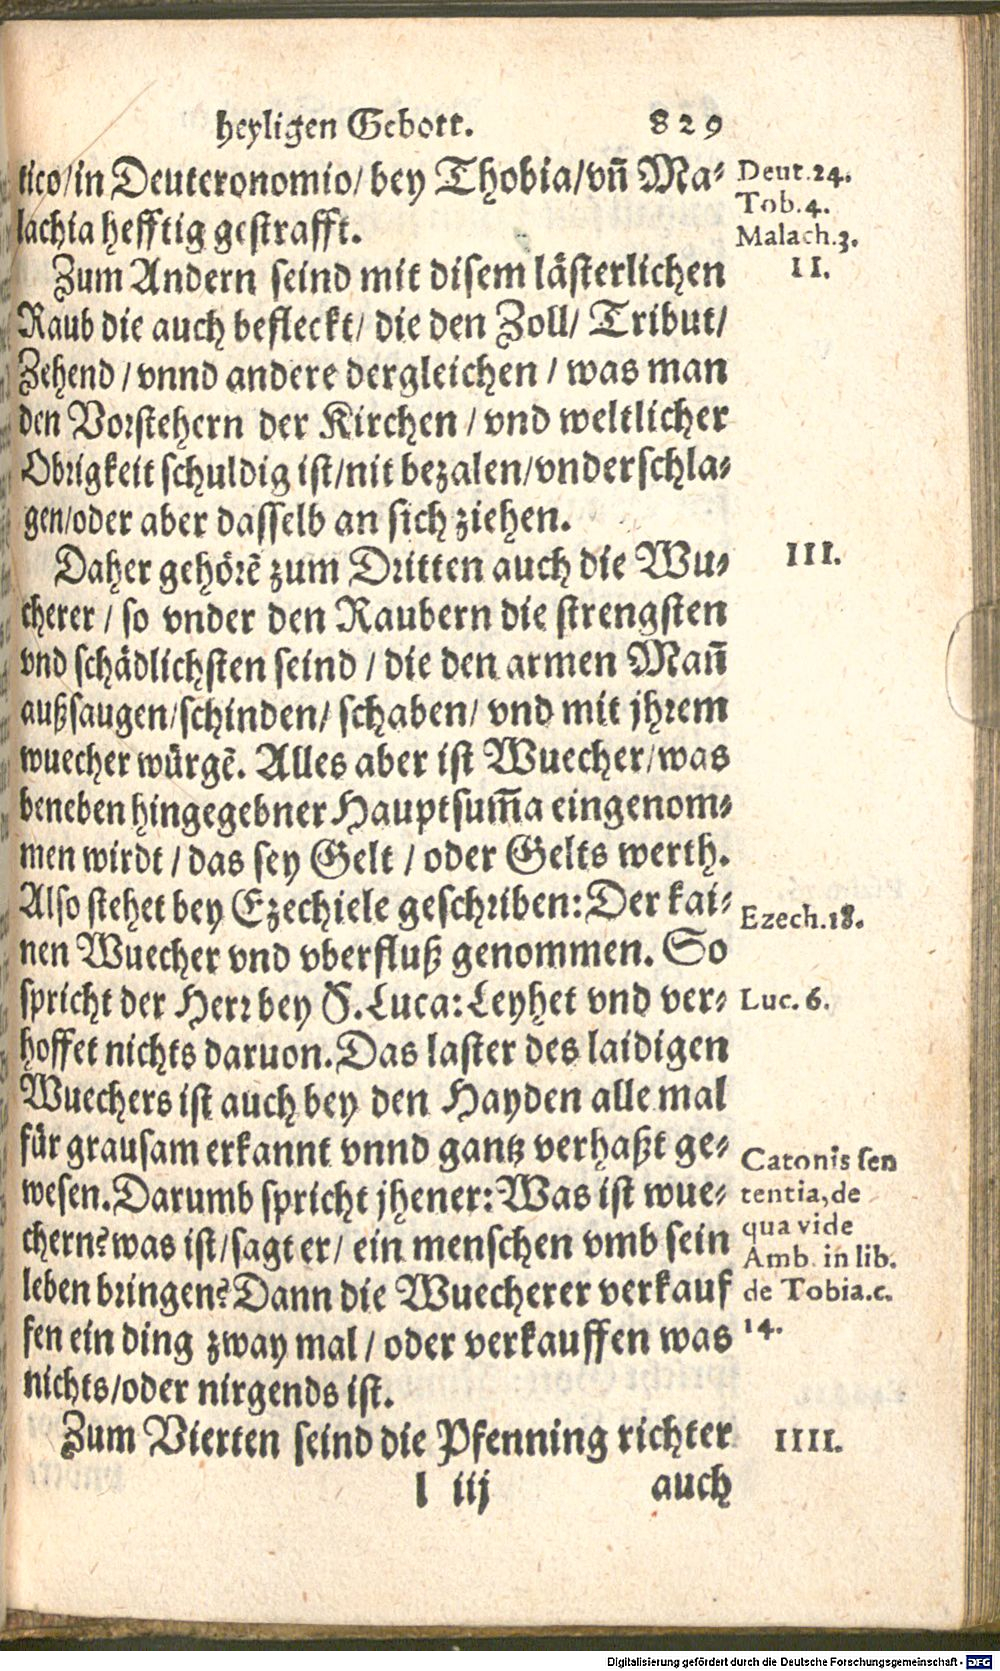 heyligen Gebott. 829
tico/in Deuteronomio/ bey Thobia/vñ Ma⸗
lachia hefftig gestrafft.
Deut.24.
Tob.4.
Malach.3.
Zum Andern seind mit disem lästerlichen
II.
Raub die auch befleckt/ die den Zoll/ Tribut/
Zehend / vnnd andere dergleichen / was man
den Vorstehern der Kirchen / vnd weltlicher
Obrigkeit schuldig ist/nit bezalen/vnderschla⸗
gen/oder aber dasselb an sich ziehen.
Daher gehörẽ zum Dritten auch die Wu⸗
III.
cherer / so vnder den Raubern die strengsten
vnd schädlichsten seind / die den armen Mañ
außsaugen/schinden/ schaben/ vnd mit jhrem
wuecher würgẽ. Alles aber ist Wuecher/was
beneben hingegebner Hauptsum̃a eingenom⸗
men wirdt / das sey Gelt / oder Gelts werth.
Also stehet bey Ezechiele geschriben: Der kai⸗
Ezech.18.
nen Wuecher vnd vberfluß genommen. So
spricht der Herr bey S. Luca: Leyhet vnd ver⸗
Luc. 6.
hoffet nichts daruon. Das laster des laidigen
Wuechers ist auch bey den Hayden alle mal
für grausam erkannt vnnd gantz verhaßt ge⸗
wesen. Darumb spricht jhener: Was ist wue⸗
chern? was ist/sagt er/ ein menschen vmb sein
leben bringen? Dann die Wuecherer verkauf
fen ein ding zway mal / oder verkauffen was
nichts/oder nirgends ist.
Catonis sen
tentia, de
qua vide
Amb. in lib.
de Tobia.c.
14.
Zum Vierten seind die Pfenning richter
IIII.
l iij auch
Digitalisierung gefördert durch die Deutsche Forschungsgemeinschaft - DFG